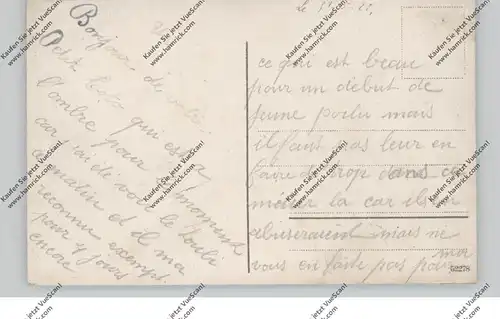 le
Bonjour de votre
Petit
qui est a
l'ombre pour le moment
car j'ai été voir le
ce matin et il ma
reconnu exempt.
pour 4 jours
encore
ce qui est beau
pour un début de
jeune poilu mais
il faut pas leur en
faire trop dans ce
métier la car ils en
abuseraient mais ne
vous en faite pas pour
moi
52278
Kaufen Sie jetzt VueScan!
www.hamrick.com